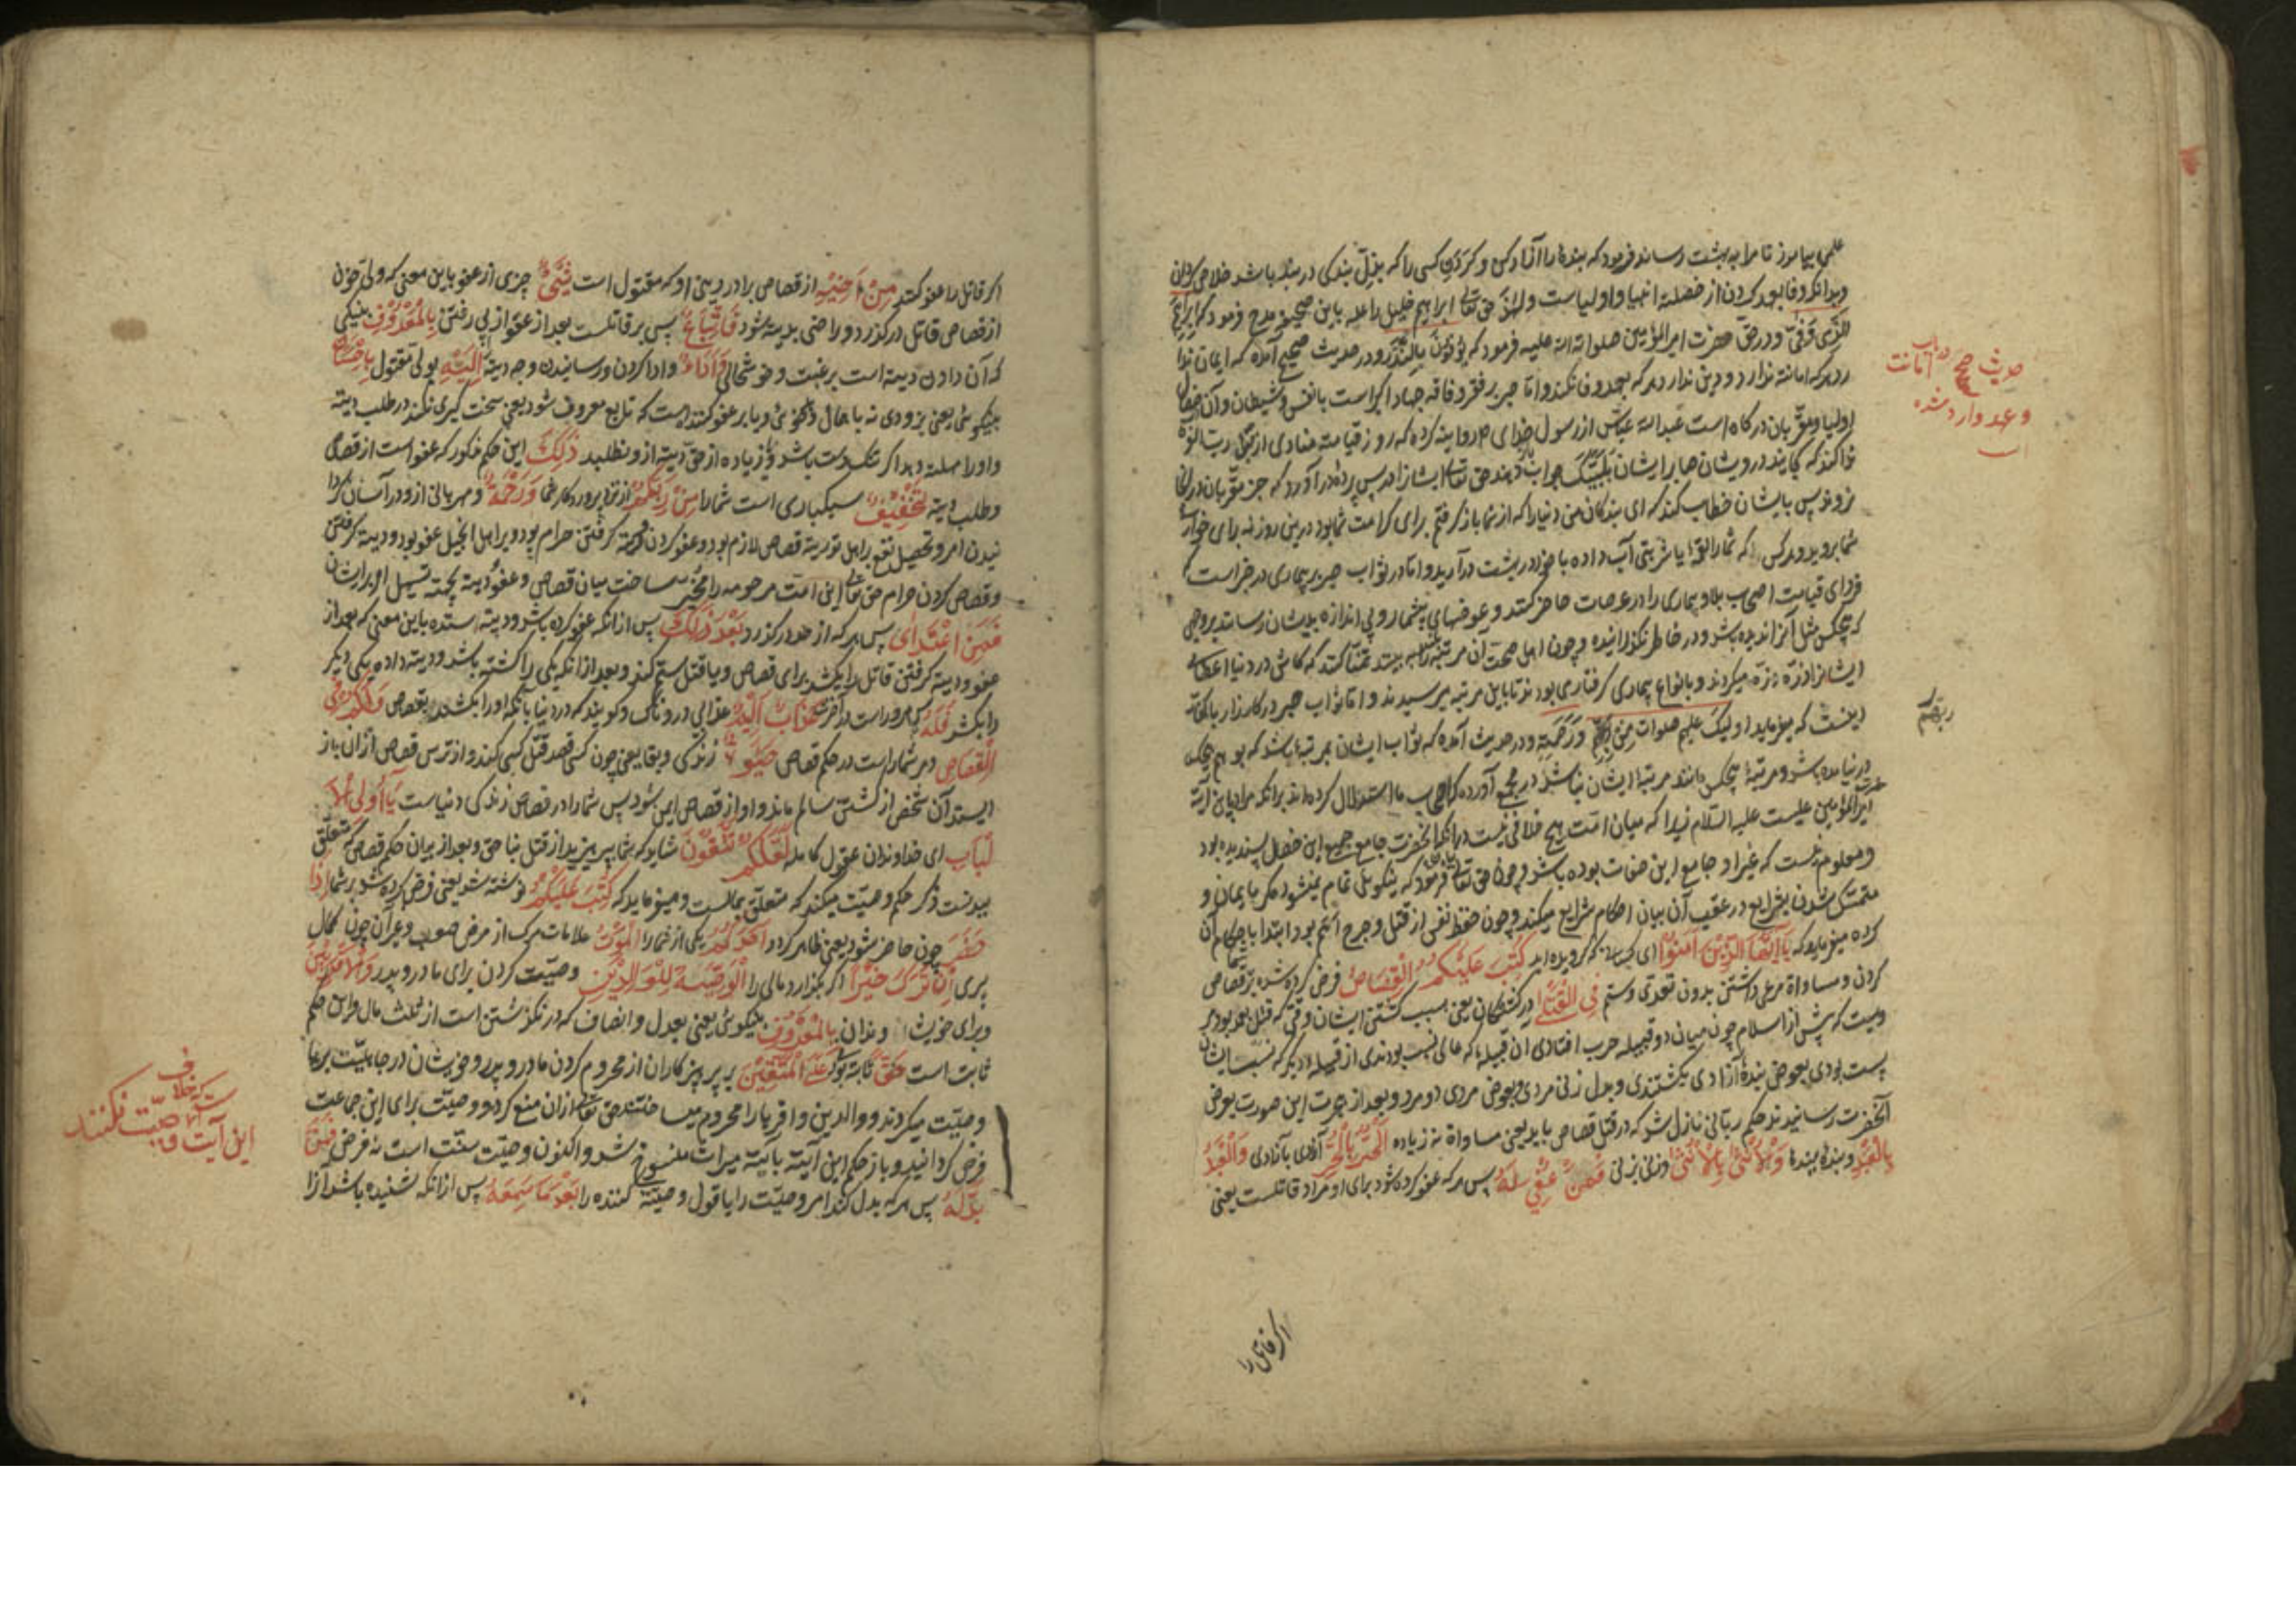 علمی بیاموز تا مرا به بهشت رساند فرمود که بنده را آزاد کن و کردن کسی را که بذل بندکی در بند باشد خلاص کردان
وبدانکه وفا بعهد کردن از خصلت انبیا و اولیاست ولهذا حق تعالی ابراهیم خلیل را علیه باین صحیح مدح فرمود که ابراهیم
الذی وفی و در حق حضرت امیرالمؤمنین صلوات الله علیه فرمود که یوفون بالنذر و در حدیث صحیح آمده که ایمان ندارد
هرکه امانت ندارد و دین ندارد هرکه بعهد وفا نکند و اما صبر بر فقر و فاقه جهاد اکبر است با نفس و شیطان و آن خصال
اولیا و مقربان درکاه است عبدالله عباس از رسول خدای روایت کرده که روز قیامت منادی از قبل رب العزه
ندا کند که کجایند درویشان صابر ایشان بلبیک جواب دهند حق تعالی ایشانرا در پس پرده در آورد که جز مقربان در انجا
نروند پس بایشان خطاب کند که ای بندکان من دنیا را که از شما باز گرفتم برای کرامت شما بود درین روز نه برای خواری
شما بروید و هرکس که شما را لقمه یا شربتی آب داده با خود در بهشت درآرید و اما در ثواب صبر بر بیماری در خبر است
فردای قیامت اصحاب بلا و بیماری را در عرصات حاضر کنند و عوضهای بیشمار و بی اندازه بدیشان رسانند بروجهی
که هیچکس مثل آنرا ندیده باشد و در خاطر نکذرانیده و چون اهل صحت آن مرتبه را ببینند تمنا کنند که کاش در دنیا اعضای
ایشانرا ذره ذره میکردند و بانواع بیماری کرفتار می بودند تا باین مرتبه میرسیدند و اما ثواب صبر در کارزار با کفار
اینست که میفرماید اولئک علیهم صلوات من ربهم ورحمة و در حدیث آمده که ثواب ایشان بمرتبه باشد که بو هم هیچکس
در نیامده باشد و مرتبه هیچکس مانند مرتبه ایشان نباشد در مجمع آورده که اصحاب ما استدلال کرده اند برانکه مراد باین آیه
حضرت امیرالمؤمنین علیست علیه السلام زیرا که میان امت هیچ خلافی نیست در انکه آنحضرت جامع جمیع این خصال پسندیده بود
و معلوم نیست که غیر او جامع این صفات بوده باشد و چون حق تعالی فرمود که نیکویی تمام نمیشود مکر بایمان و
متمسک شدن بشرایع در عقب آن بیان احکام شرایع میکند و چون حفظ نفس از قتل و جرح اهم بود ابتدا باحکام آن
کرده میفرماید که یا ایها الذین آمنوا ای کسانی که کرویده اید کتب علیکم القصاص فرض کرده شد بر شما قصاص
کردن و مساواة مرعی داشتن بدون تعدی و ستم فی القتلی در کشتکان یعنی بسبب کشتن ایشان وقتی که قتل بعمد بود مر
ویست که پیش از اسلام چون میان دو قبیله حرب افتادی ان قبیله که عالی نسب بودندی از قبیله دیکر که نسب ایشان
پست بودی بعوض بنده آزادی بکشتندی و بدل زنی مردی و بعوض مردی دو مرد و بعد از هجرت این صورت بعرض
آنحضرت رسانیدند حکم ربانی نازل شد که در قتل قصاص باید یعنی مساواة نه زیاده الحر بالحر آزادی بآزادی والعبد
بالعبد و بنده ببنده والانثی بالانثی و زنی بزنی فمن عفی له پس هرکه عفو کرده شود برای او مراد قاتلست یعنی
اکر قاتل را
حدیث صحیح در باب امانت
و عهد وارد شده
است
اکر قاتل را عفو کنند من اخیه از قصاص برادر دینی او که مقتول است شیء چیزی از عفو باین معنی که ولی خون
از قصاص قاتل درکذرد و راضی بدیه شود فاتباع پس بر قاتلست بعد از عفو از پی رفتن بالمعروف بنیکی
که آن دادن دیت است برغبت و خوشحالی واداء و ادا کردن و رسانیدن وجه دیت الیه بولی مقتول باحسان
بنیکوئی یعنی بزودی نه با همال و ناخوشی و یا بر عفو کننده است که تابع معروف شود یعنی سخت کیری نکند در طلب دیت
و او را مهلت دهد اکر تنکدست باشد و زیاده از حق دیت ازو نطلبد ذلک این حکم مذکور که عفو است از قصاص
و طلب دیت تخفیف سبکباری است شما را من ربکم از نزد پروردکار شما ورحمة و مهربانی ازو در آسان کردا
نیدن امر و تحصیل نفع بر اهل توریت قصاص لازم بود و عفو کردن و دیت کرفتن حرام بود و بر اهل انجیل عفو بود و دیت کرفتن
و قصاص کردن حرام حق تعالی این امت مرحومه را مخیر ساخت میان قصاص و عفو و دیت بجهت تسهیل امر بر ایشان
فمن اعتدی پس هر که از حد درکذرد بعد ذلک پس از انکه عفو کرده باشد و دیت استده باین معنی که بعد از
عفو و دیت کرفتن قاتل را بکشد برای قصاص و یا قتل ستم کند و بعد از انکه یکی را کشته باشد و دیت داده یکی دیکر
را بکشد فله پس مر او راست در آخرت عذاب الیم عذابی دردناک و کویند که در دنیا بانکه او را بکشند بقصاص ولکم فی
القصاص و مر شما راست در حکم قصاص حیوة زندکی و بقا یعنی چون کسی قصد قتل کسی کند و از ترس قصاص از آن باز
ایستد آن شخص از کشتن سالم ماند و او از قصاص ایمن شود پس شما را در قصاص زندکی دنیاست یا اولی الا
لباب ای خداوندان عقول کامله لعلکم تتقون شاید که شما بپرهیزید از قتل بناحق و بعد از بیان حکم قصاص که متعلق
ببدنست ذکر حکم وصیت میکند که متعلق بمالست و میفرماید که کتب علیکم نوشته شد یعنی فرض کرده شد بر شما اذا
حضر چون حاضر شود یعنی ظاهر کردد احدکم یکی از شما را الموت علامات مرک از مرض صعب و غیر آن چون کمال
پری ان ترک خیرا اکر بکذارد مالی را الوصیة للوالدین وصیت کردن برای مادر و پدر والاقربین
و برای خویشاوندان بالمعروف بنیکوئی یعنی بعدل و انصاف که در نکذشتن است از ثلث مال و این حکم
ثابت است حقا ثابت بودنی علی المتقین بر پرهیزکاران از محروم کردن مادر و پدر و خویشان در جاهلیت بر غیر
وصیت میکردند و والدین و اقربا را محروم میساختند حق تعالی ازان منع کرد و وصیت برای این جماعت
فرض کردانید و باز حکم این آیت بآیت میراث منسوخ شد و اکنون وصیت سنت است نه فرض فمن
بدله پس هرکه بدل کند امر وصیت را یا قول وصیت کننده را بعد ما سمعه پس از انکه شنیده باشد آنرا
که خلاف
این آیت وصیت نکنند